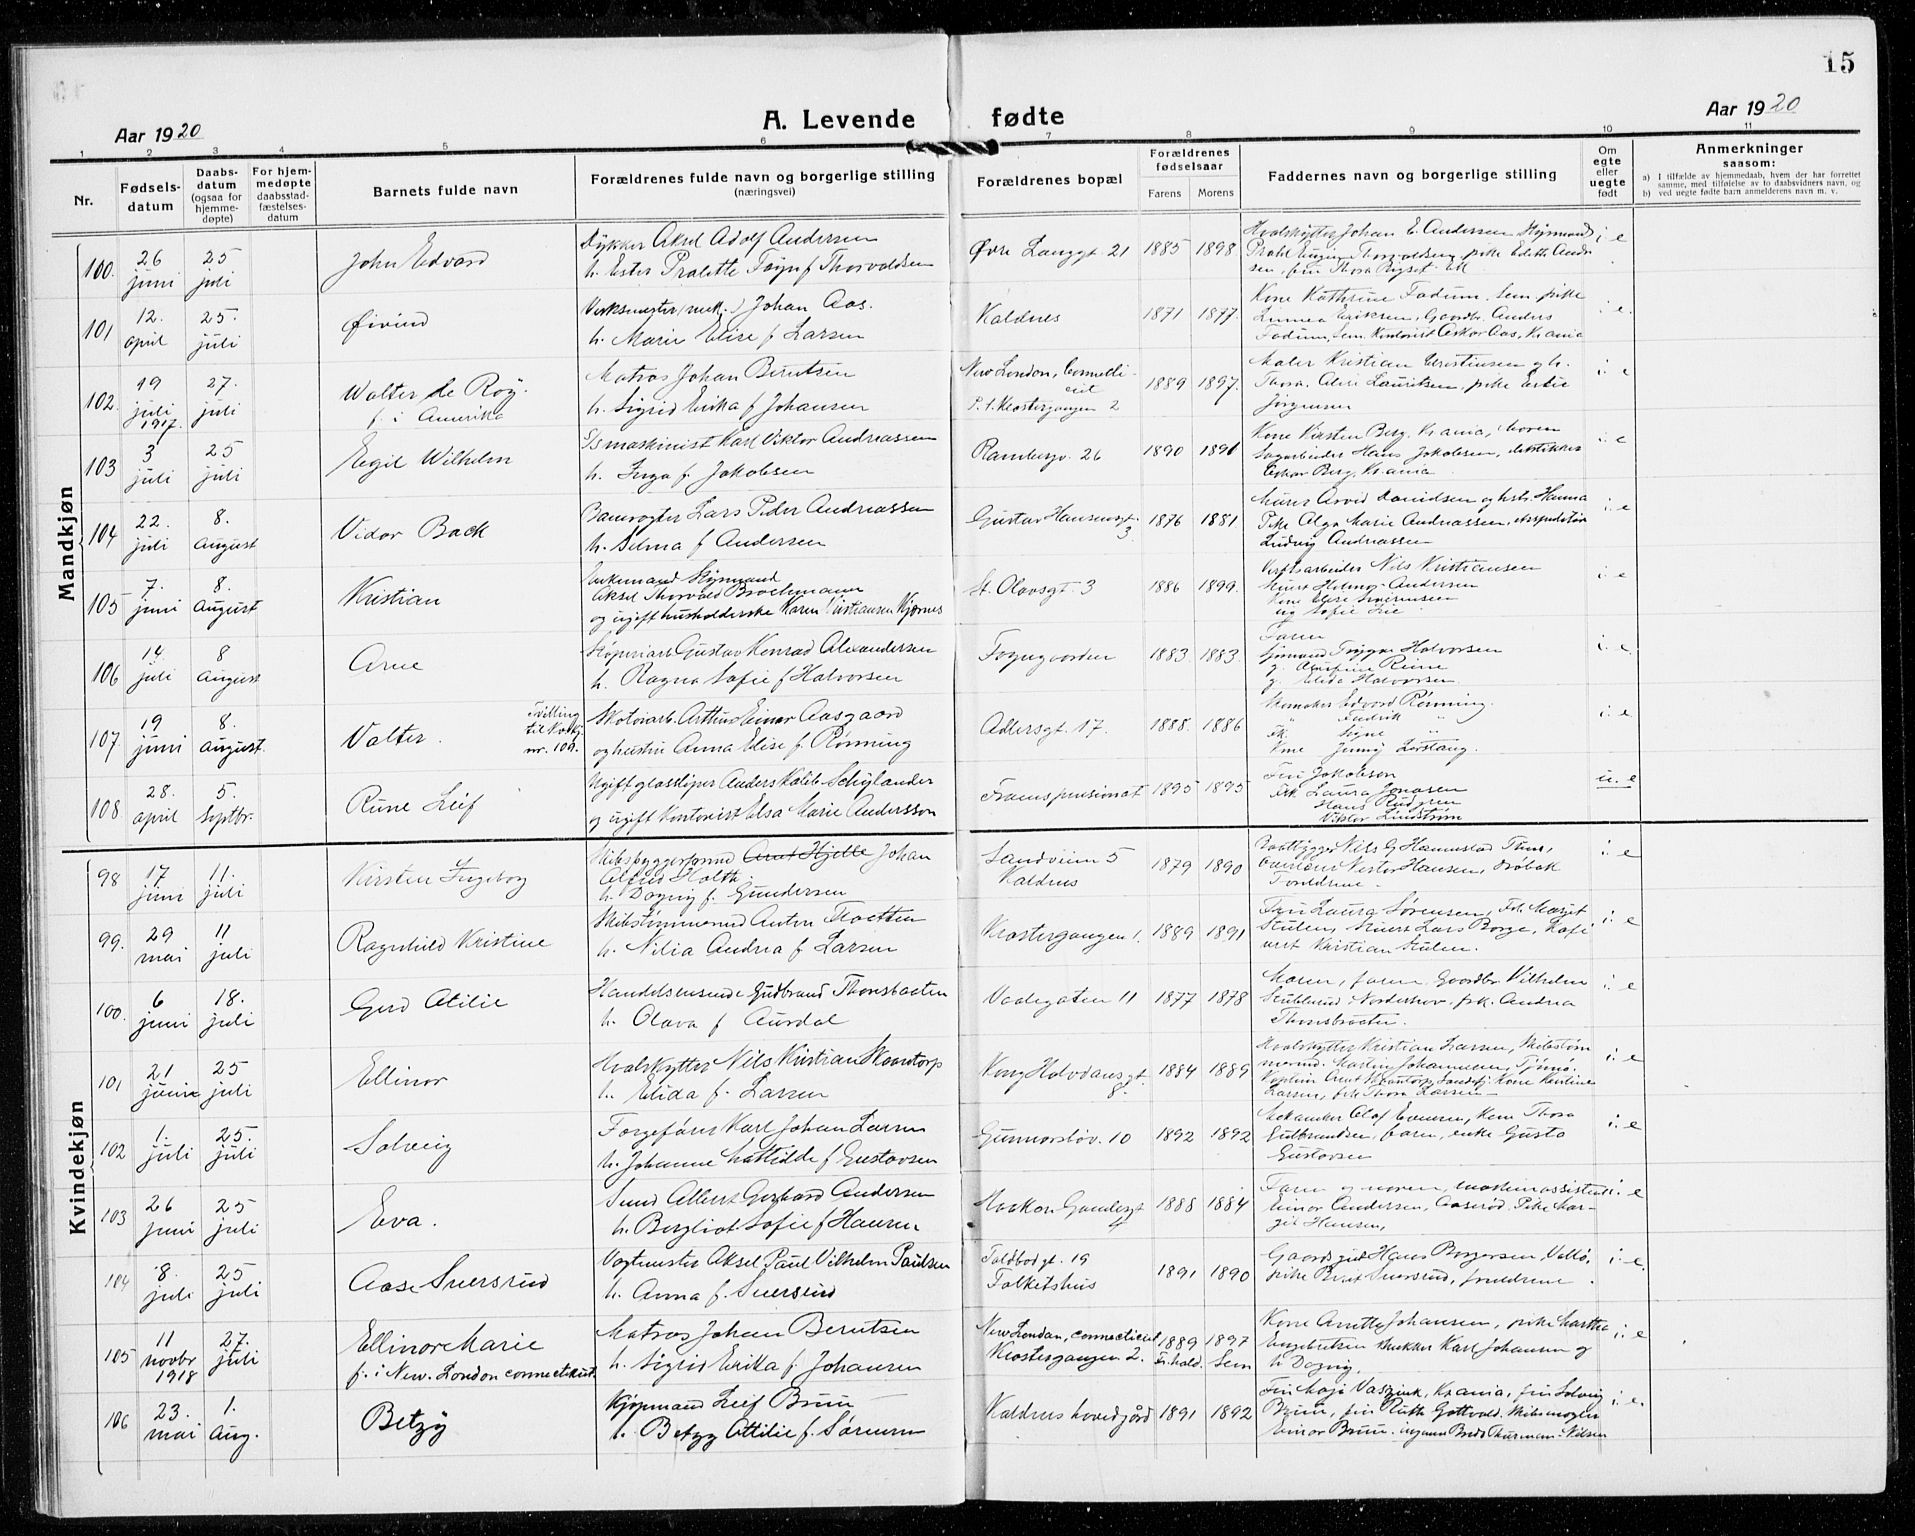 15
Aar 1920
A. Levende fødte
Aar 1920
1 2 3 4 5 6 7 8 9 10 11
Nr.
Fødsels-
datum
Daabs-
datum
(ogsaa for
hjemme-
døpte)
For hjem-
medøpte
daabsstad-
fæstelses-
datum
Barnets fulde navn
Forældrenes fulde navn og borgerlige stilling
(næringsvei)
Forældrenes bopæl
Forældrenes
fødselsaar
Farens Morens
Faddernes navn og borgerlige stilling
Om
egte
eller
uegte
født
Anmerkninger
saasom:
a) I tilfælde av hjemmedaab, hvem der har forrettet
samme, med tilføielse av to daabsvidners navn, og
b) ved uegte fødte barn anmelderens navn m. v.
Mandkjøn
100. 26 juni 25 juli John Edvard
Dykker Aksel Adolf Andersen
h. Ester Pralette Fogn f Thorvaldsen
Øvre Langgt 21 1885 1898
Hvalskytter Johan E. Andersen
i. e
101 12. april 25. juli Øivind
Verksmester (mek.) Johan Aas.
h. Marie Elise f Larsen
Kaldnes 1871 1877
Kone Kathrine Fadum. Sem pike
Linnea Eriksen, Gaardbr. Anders
Fadum, Sem Kontorist Oskar Aas, Krania
i. e.
102. 19 juli 1917. 27. juli Walter de Roy.
f. i Amerika
Matros Johan Berntsen
h. Sigrid Erika f Johansen
New London, Connecti-
cut
P. t. Klostergangen 2 1889 1897.
Maler Kristian Christensen og h.
Thora. Lauritsen, pike
Jørgensen
i. e
103 3 juli 25 juli Egil Wilhelm
S/S maskinist Karl Viktor Andreassen
h. Inga f. Jakobsen
Rambergv. 26 1890 1891
Kone Kirsten Berg. Krania,
Sagarbeider Hans Jakobsen,
Oskar Berg, Krania
i. e
104 22. juli 8. august Vidar Back
Banevogter Lars Peder Andreassen
h. Selma f Andersen
Gustav Hansensgt.
3. 1876 1881
Murer Arvid Davidsen og hstr. Hanna
Pike Olga Marie Andreassen, ekspeditør
Ludvig Andreassen
i. e
105 7. juni 8. august Kristian
Enkemand Styrmand
Aksel Thorvald Brochmann
og ugift husholderske Karen Kristiansen Kjærnes
St. Olavsgt. 3 1886 1899.
Verftsarbeider Nils Kristiansen
Andersen
Kone Elise
og Sofie Lie
i. e
106 14 juli 8 august Arne
Støperiarb. Gustav Konrad Alexandersen
h. Ragna Sofie f Halvorsen
Fogngaarden 1883. 1883.
Faren
Sjømand Trygve Halvorsen
g. Riine
g. Elida Halvorsen
i. e.
107. 19 juni 8. august. Valter.
Tvilling
til Kvkj.
nr. 109.
Skotøiarb. Arthur Einar Aasgaard
og hustru Anna Elise f. Rønning
Adlersgt. 17. 1888. 1886
Skomaker Edvard Rønning.
" Fredrik "
Frk. Signe "
Kone Jenny
i. e
108 28. april 5. Septbr. Rune Leif
Ugift glassliper Anders Kaleb Schylander
og ugift Kontorist Elsa Marie Andersson
Framspensionat 1895 1895
Fru Jakobson
Frk. Laura Jonasen
Hans Rudgren
Viktor Lindstrøm
u. e
Kvindekjøn
98 17 juni 11. juli Kirsten Ingeborg
Skibsbyggerformd Arnt Hjelle Johan
Alfred Holth.
h. Dagny f. Gundersen
Sandveien 5
Kaldnes 1879 1890
Nils G. Hammestad Thm,
Nestor Hansen, Drøbak
Foreldrene.
i. e
99. 29 mai 11 juli Ragnhild Kristine
Skibstømmermd Anton Thoctten
h. Nilia Andrea f Larsen
Klostergangen 1. 1889 1891
Fru Laura Sørensen, Frk. Margit
Stulen, Stuert Lars Borge, Kafe
vert Kristian Stulen.
i. e
100. 6 juni 18. juli Gerd Otilie
Handelsreisende Gudbrand Thonsbraaten
h. Olava f Aurdal
Vaalegaten 11 1877 1878
Moren, faren. Gaardbr. Vilhelm
Stubberud, Norderhov, frk. Andrea
Thonsbraaten.
i. e
101 21 juni 25 juli Ellinor
Hvalskytter Nils Kristian Skaantorp
h. Elida f. Larsen
Kong Halvdansgt.
8. 1884 1889
Hvalskytter Kristian Larsen, Skibstøm
mermd. Martin Johannesen, Tjømø.
Kaptein Arnt Skaantorp, Sandefj. Kone Kristine
Larsen, frk Thora Larsen
i. e
102 1. juli 25. juli Solveig
Forgefører Karl Johan Larsen
h. Johanne Mathilde f Gustavsen
Gunnarsbøv. 10 1892 1892
Mekaniker Olaf Evensen, Kone Thora
Gulbrandsen, faren, enke Gusta
Gustavsen
i. e
103 26 juni 25 juli Eva.
Smed Albert Gerhard Andersen
h. Bergliot Sofie f Hansen
Haakon Gamlesgt
4 1888 1884
Faren og moren, maskinassistent
Einar Andersen, Aaserød. Pike Mar-
git Hansen,
i. e
104 8. juli 25 juli Aase Suersrud
Vagtmester Aksel Paul Vilhelm Paulsen
h. Anna f. Suersrud
Toldbodgt. 19
Folketshus 1891 1890
Gaardsgut Hans Borgersen Vallø,
pike Suersrud, foreldrene.
i. e.
105 11 novbr 1918 27. juli Ellinor Marie
f. i New. London connecticut.
Matros Johan Berntsen
h. Sigrid Erika f. Johansen
New London, connecticut
Klostergangen 2. 1889 Fr.hald. 1897 Sem
Kone Anette Johansen, pike Martha
Engebretsen Trykker Karl Johansen og
h Dagny.
i. e
106 23. mai 1. Aug. Betzy
Kjøpmand Leif Bruu
h. Betzy Attilie f. Sørensen
Kaldnes hovedgård 1891 1892
Fru Maja Vaszink, Krania, fru Solveig
Bruu, fru Ruth Gottvald, Skibsmægler
Einar Bruu, ingeniør Bredo Thurmann-Nielsen
i. e.